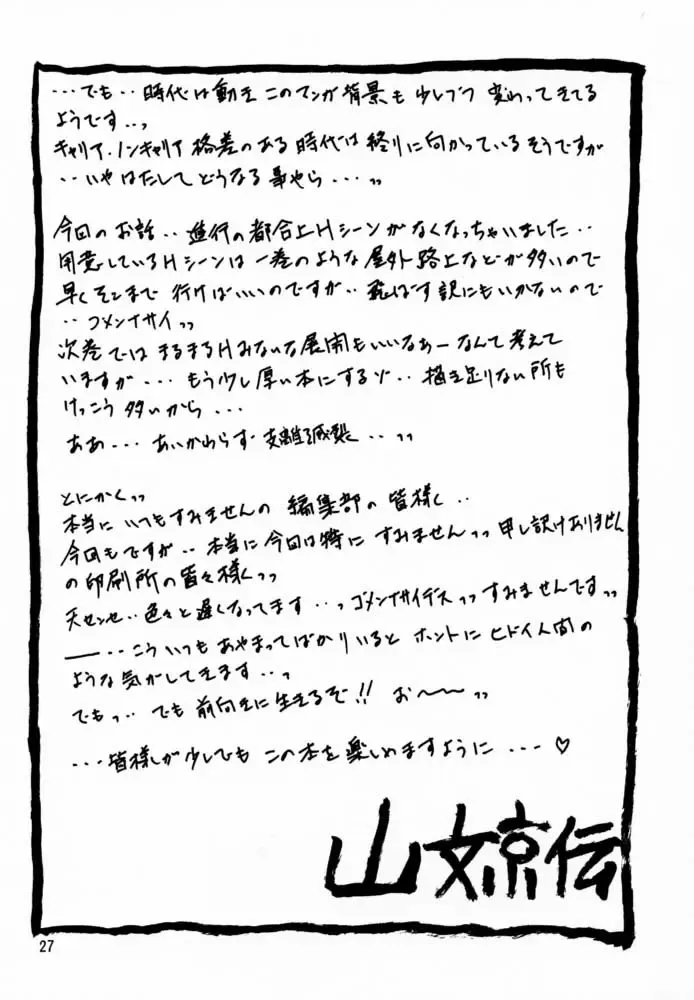 ・・・でも・・時代は動き このマンガ背景も少しづつ 変わってきてる
ようです・・っ
キャリア.ノンキャリア 格差のある時代は終りに向かっているそうですが
・・いやはたしてどうなる事やら・・・〃
今回のお話・・進行の都合上Hシーンがなくなっちゃいました・・
用意しているHシーンは一巻のような屋外路上などが多いので
早くそこまで行けばいいのですが・・飛ばす訳にもいかないので
・・ゴメンナサイっっ
次巻ではまるまるHみたいな展開もいいなぁーなんて考えて
いますが・・・もう少し厚い本にするゾ・・描き足りない所も
けっこう多いから・・・
ああ・・・あいかわらず支離滅裂・・っっ
とにかくっっ
本当にいつもすみませんの 編集部の皆様く・・
今回もですが・・本当に今回は特に すみませんっっ申し訳けありません
の印刷所の皆々様くっっ
天センセ・・色々と遅くなってます・・っゴメンナサイデスっっすみませんですっっ
――・・こういつもあやまってばかりいると ホントにヒドイ人間の
ような気がしてきます・・っ
でもっ・・でも前向きに生きるぞ!! お〜〜っっ
・・・皆様が少しでも この本を楽しめますように・・・♡
山文京伝
27